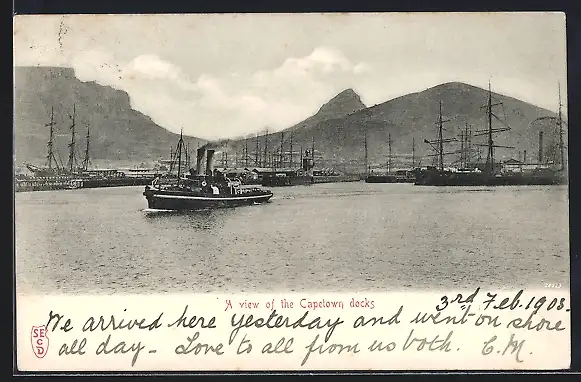 A view of the Capetown docks
3rd Feb. 1908.
We arrived here yesterday and went on shore
all day - Love to all from us both. C.M.
SECD